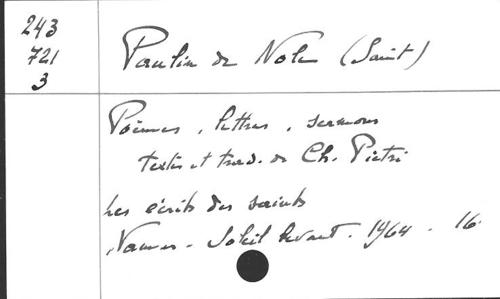 243
721
3
Paulin de Nole (Saint)
Poèmes, lettres, sermons
textes et trad. de Ch. Pietri
Les écrits des saints
Namur - Soleil levant - 1964 - 16